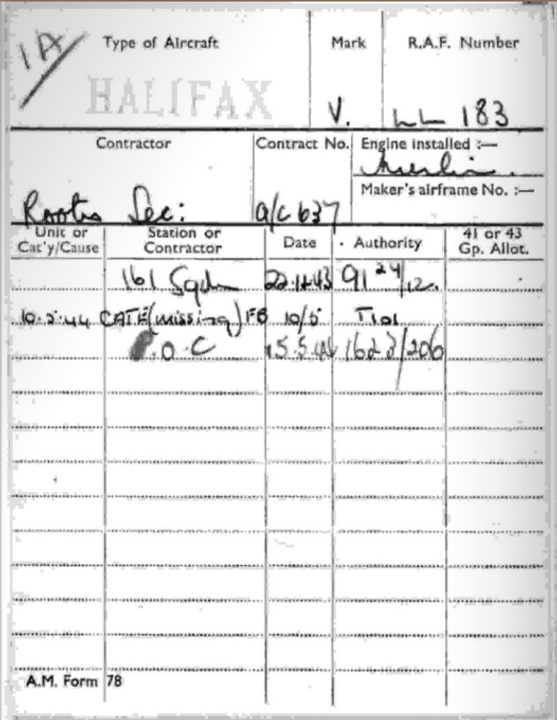 1A
Type of Aircraft Mark R.A.F. Number
HALIFAX V. LL 183
Contractor Contract No. Engine installed :—
Merlin.
Maker's airframe No. :—
Rootes Sec: a/c 637
Unit or Cat'y/Cause Station or Contractor Date Authority 41 or 43 Gp. Allot.
161 Sqdn 91 24/12.
10.5.44 CATE (missing) FB 10/5 T101
O.C 15.5.44 1623/206
A.M. Form 78